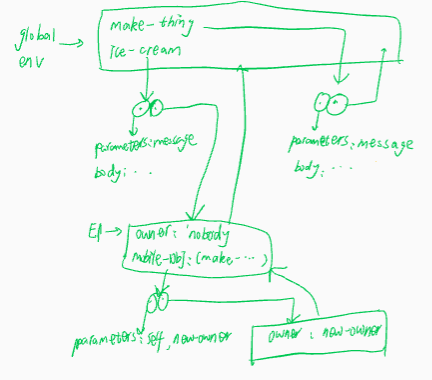 global
env
make-thing
Ice-cream
parameters: message
body: ...
parameters: message
body: ...
E1
owner: 'nobody
mobile-obj: (make-...)
parameters: self, new-owner
owner: new-owner